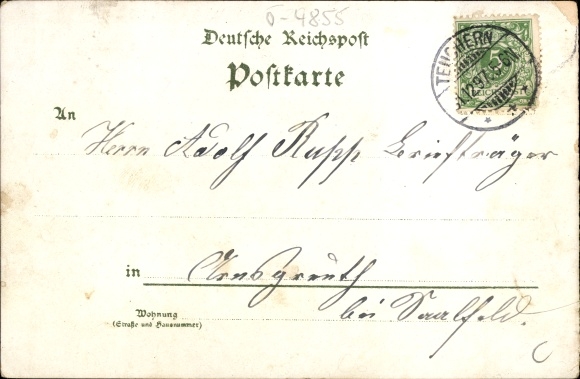 0-4855
Deutsche Reichspost
Postkarte
TEUCHERN
An
Herrn Adolf Rupp Briefträger
in Arnsgereuth
bei Saalfeld.
Wohnung
(Straße und Hausnummer)